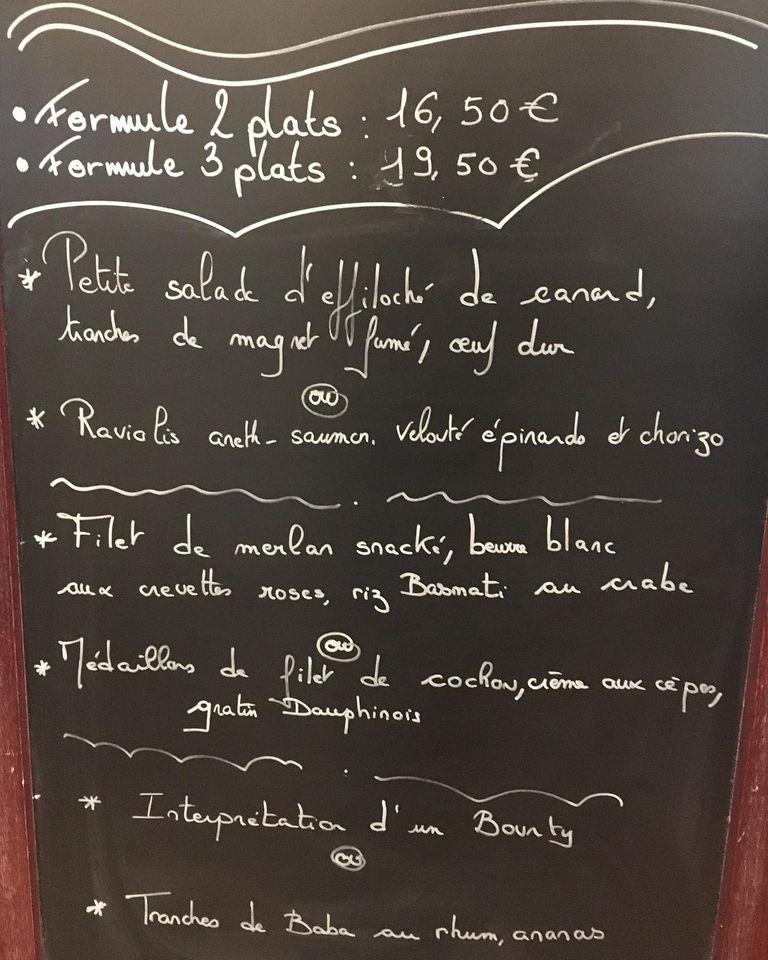 • Formule 2 plats : 16,50 €
• Formule 3 plats : 19,50 €
* Petite salade d'effiloché de canard,
tranches de magret fumé, œuf dur
ou
* Raviolis aneth-saumon. Velouté épinards et chorizo
* Filet de merlan snacké, beurre blanc
aux crevettes roses, riz Basmati au crabe
ou
* Médaillons de filet de cochon, crème aux cèpes,
gratin Dauphinois
* Interprétation d'un Bounty
ou
* Tranches de Baba au rhum, ananas